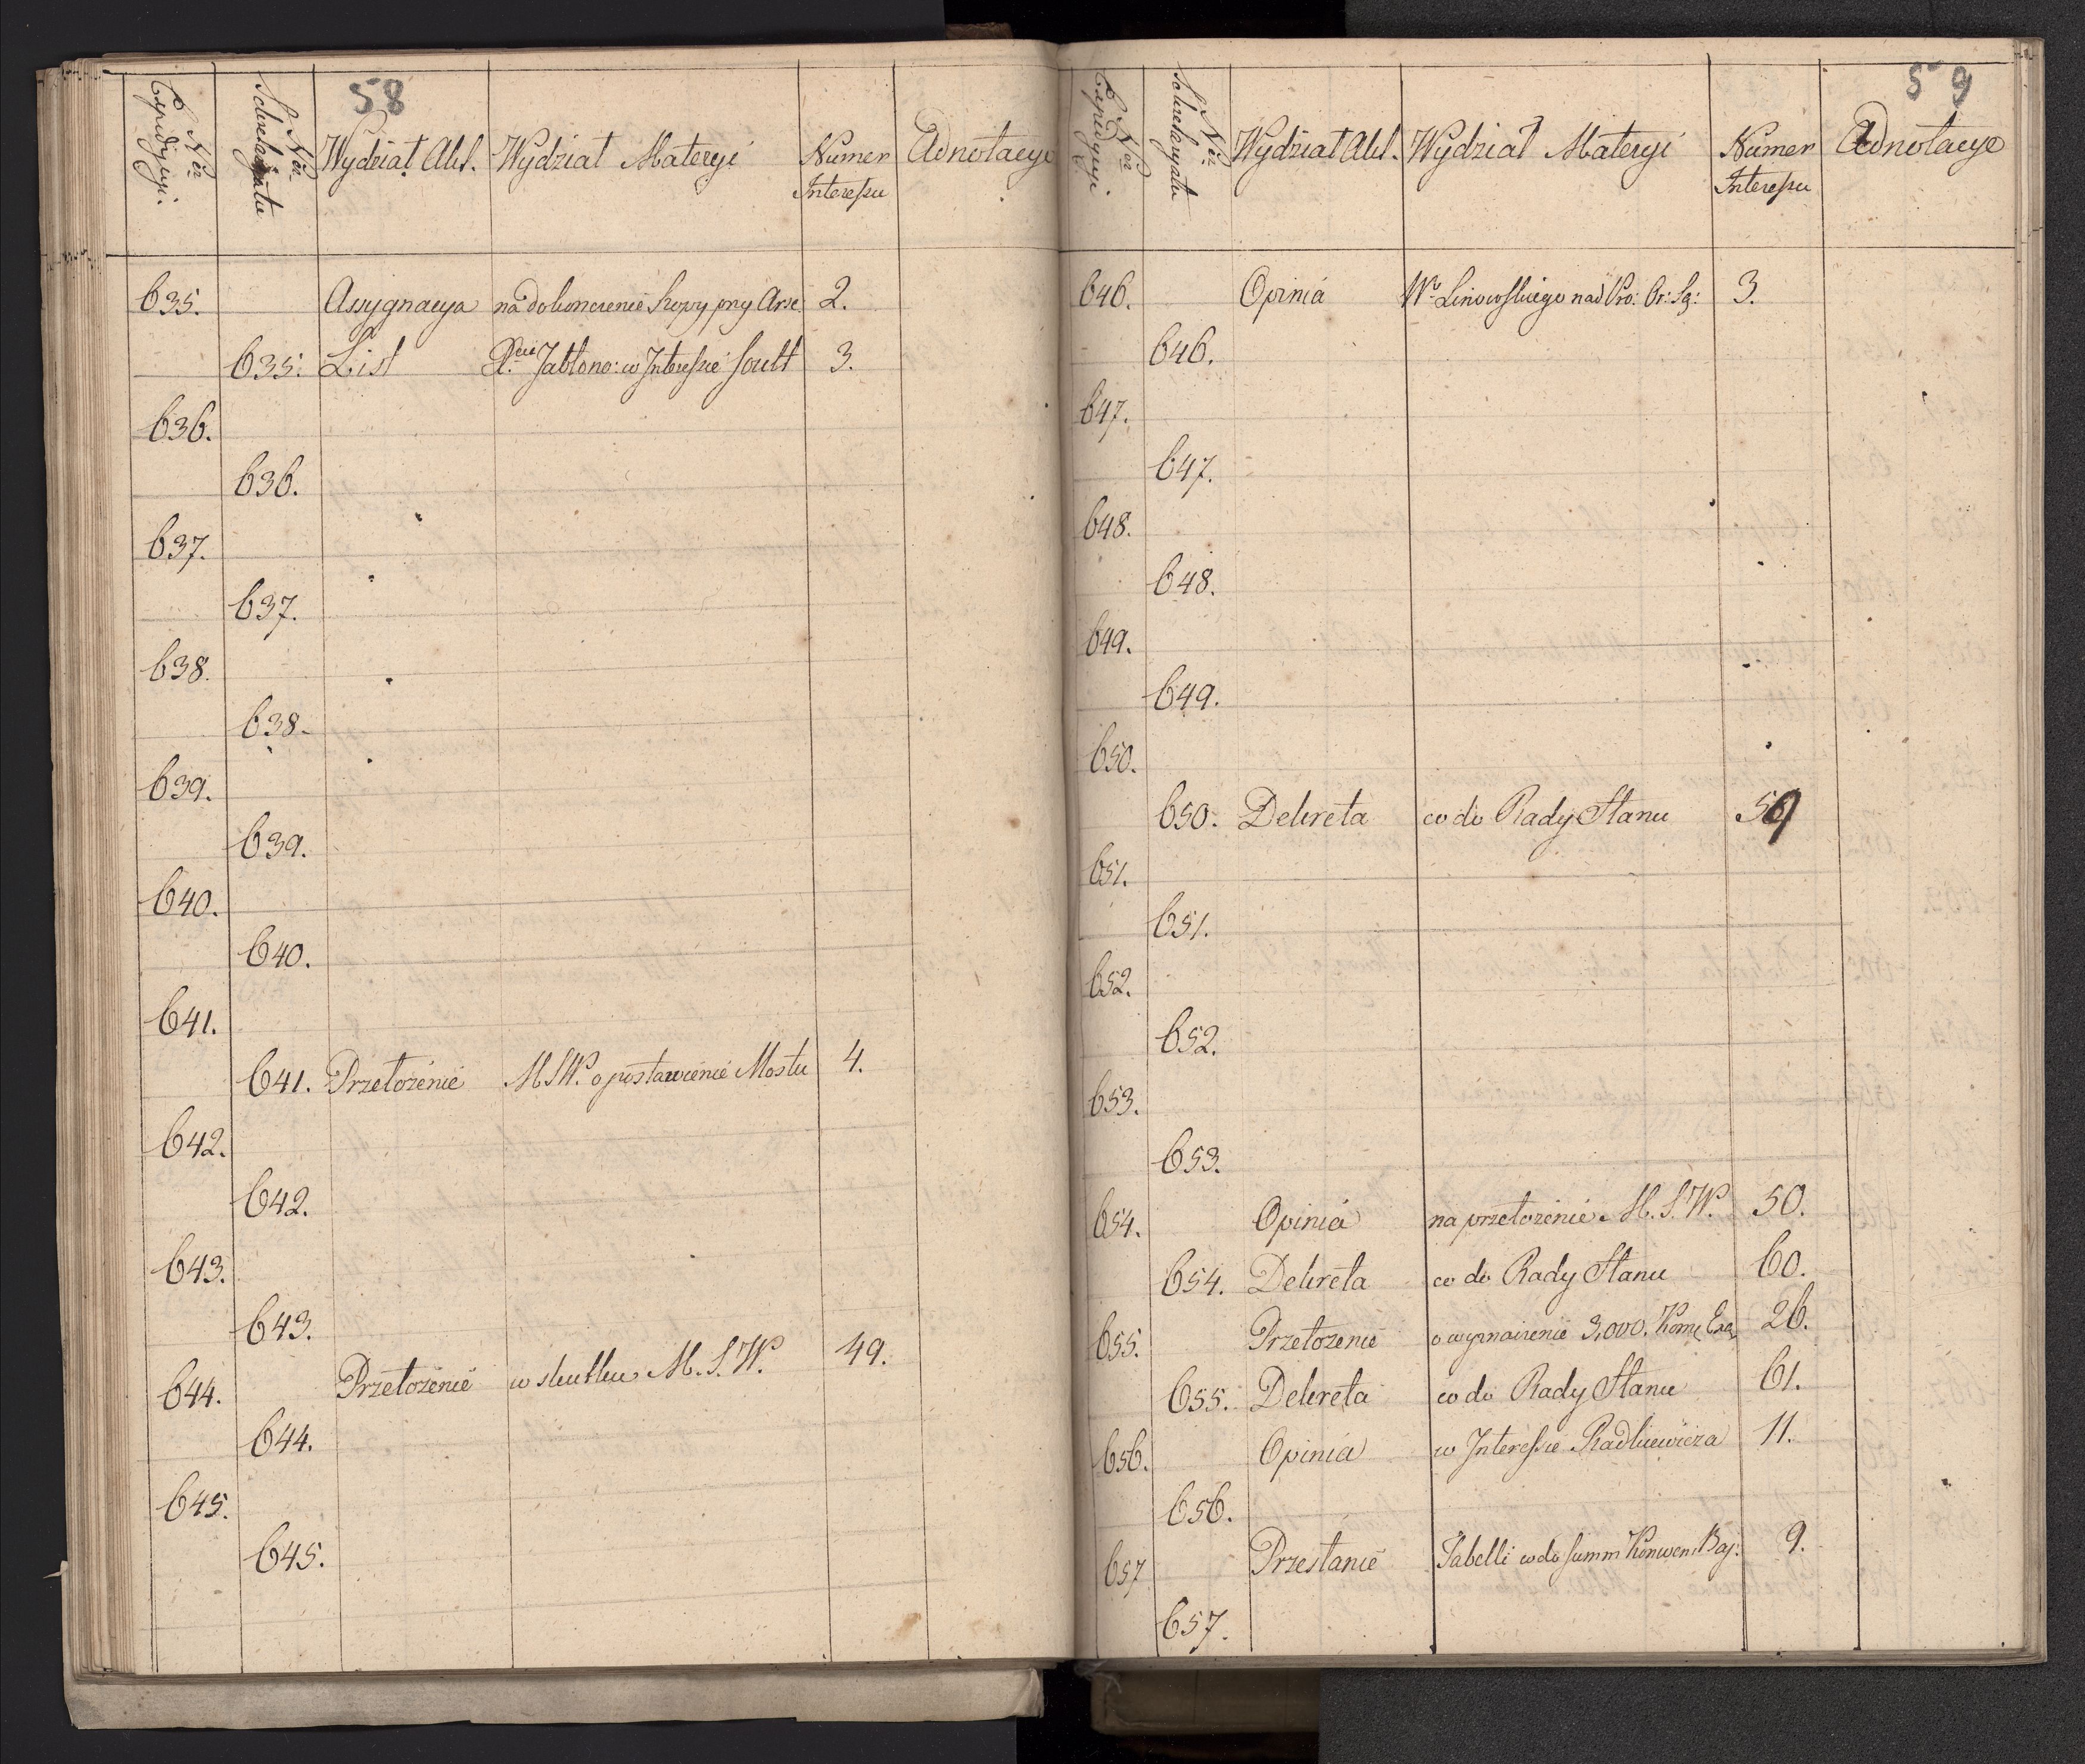 58
Nro Expedycyi.
Nro Sekretaryatu
Wydział Akt.
Wydział Materyi
Numer Interessu
Adnotacye
635. Assygnacya na dokonczenie Szopy przy Arse. 2.
635. List Jabłono: w Interessie Soult 3.
636.
636.
637.
637.
638.
638.
639.
639.
640.
640.
641.
641. Przełożenie M.S.W. o postawienie Mostu 4.
642.
642.
643.
643.
644. Przełożenie w skutku M.S.W. 49.
644.
645.
645.
59
Nro Expedycyi
Nro Sekretaryatu
Wydział Akt.
Wydział Materyi
Numer Interessu
Adnotacye
646. Opinia Wo Linowskiego nad Pro: Or: Są: 3.
646.
647.
647.
648.
648.
649.
649.
650.
650. Dekreta co do Rady Stanu 59
651.
651.
652.
652.
653.
653.
654. Opinia na przełożenie M.S.W. 50.
654. Dekreta co do Rady Stanu 60.
655. Przełożenie o wyznaczenie 3,000. 26.
655. Dekreta co do Rady Stanu 61.
656. Opinia w Interessie Radkiewicza 11.
656.
657 Przesłanie Tabelli co do summ Konwen: Baj: 9.
657.